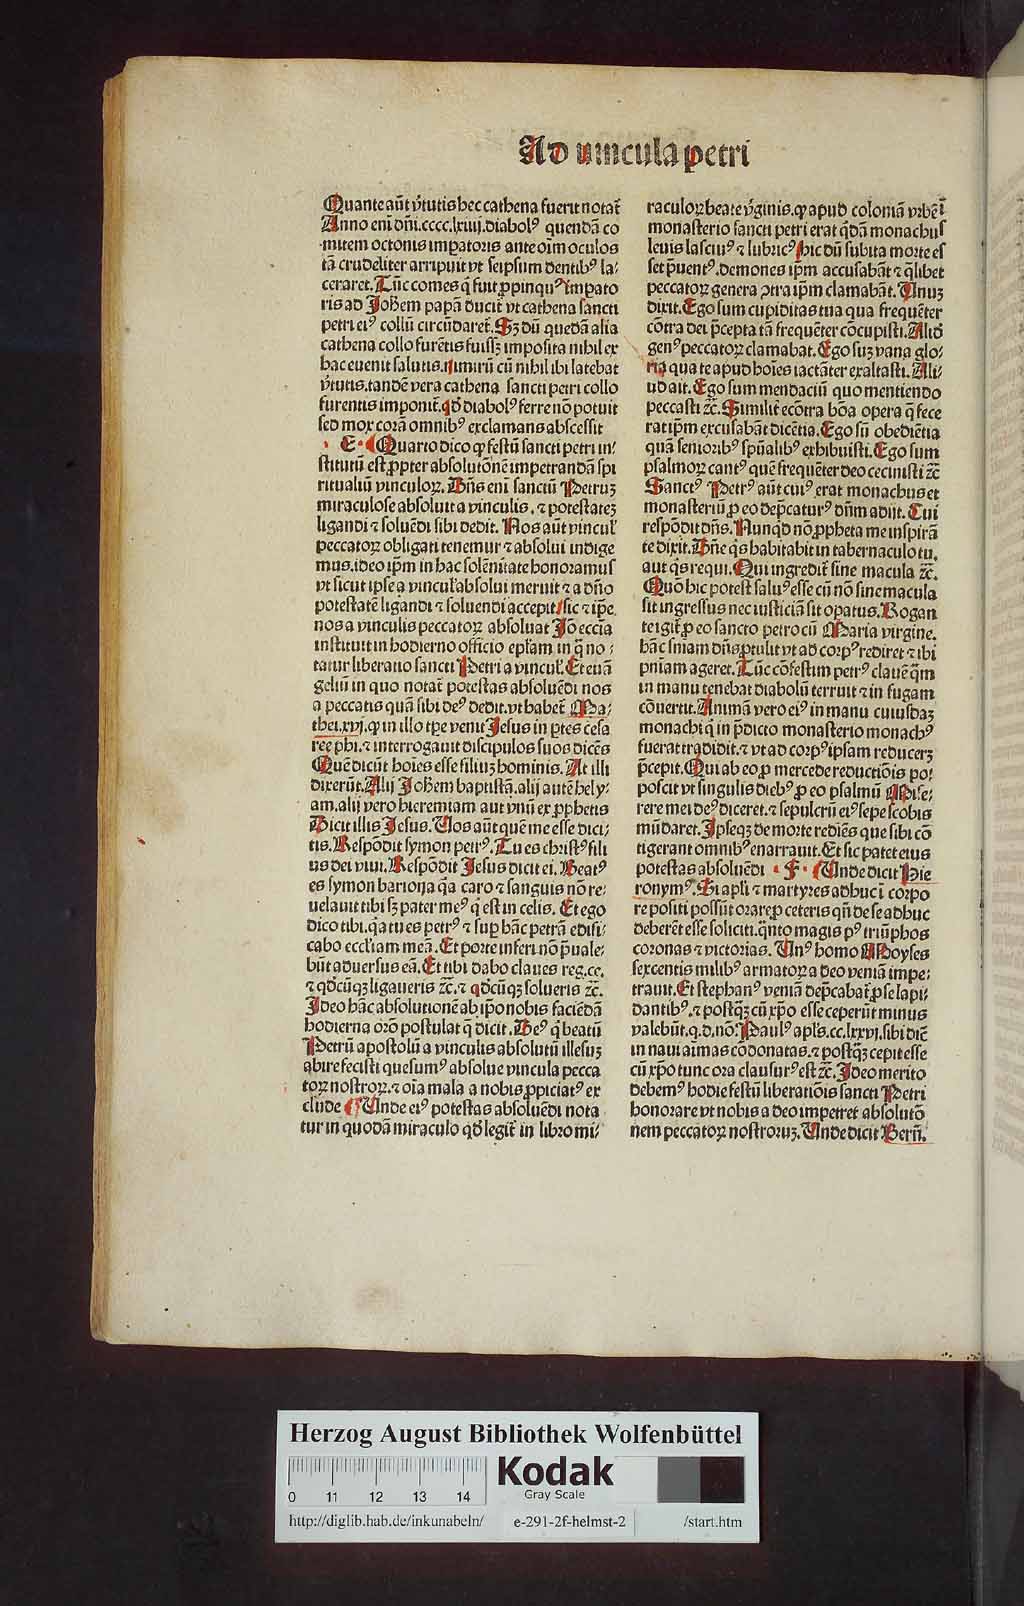 Ad vincula petri
Quante aūt v̄tutis hec cathena fuerit notat᷑
Anno eni dn̄i.cccc.lxiiij.diabolꝰ quendā co
mitem octonis imꝑatoris ante oīm oculos
tā crudeliter arripuit vt seipsum dentibꝰ la⸗
ceraret.Tūc comes q̄ fuit ꝓpinquꝰ imꝑato
ris ad Joh̄em papā ducit᷑ vt cathena sancti
petri eiꝰ collū circūdaret᷑.Sꝫ dū quedā alia
cathena collo furētis fuissꝫ imposita nihil ex
hac euenit salutis.nimirū cū nihil ibi latebat
v̄tutis.tandē vera cathena sancti petri collo
furentis imponit᷑.qd̄ diabolꝰ ferre nō potuit
sed mox corā omnibꝰ exclamans abscessit
·E·Quarto dico ꝙ festū sancti petri in⸗
stitutū est ꝓpter absolutōnē impetrandā spi
ritualiū vinculoꝝ.Dn̄s eni sanctū Petruꝫ
miraculose absoluit a vinculis.⁊ potestateꝫ
ligandi ⁊ soluēdi sibi dedit.Nos aūt vincul᷑
peccatoꝝ obligati tenemur ⁊ absolui indige
mus.ideo ip̄m in hac solēnitate honoramus
vt sicut ipse a vincul᷑ absolui meruit ⁊ a dn̄o
potestatē ligandi ⁊ soluendi accepit/sic ⁊ ip̄e
nos a vinculis peccatoꝝ absoluat Jō ecc̄ia
instituit in hodierno officio ep̄lam in q̄ no⸗
tatur liberatio sancti Petri a vincul᷑.Et euā
geliū in quo notat᷑ potestas absoluēdi nos
a peccatis quā sibi deꝰ dedit.vt habet᷑ Ma⸗
thei.xvj.ꝙ in illo tp̄e venit Jesus in ꝑtes cesa
ree phi.⁊ interrogauit discipulos suos dicēs
Quē dicūt hoīes esse filiuꝫ hominis.At illi
dixerūt.Alij Joh̄em baptistā.alij autē hely⸗
am.alij vero hieremiam aut vnū ex ꝓphetis
Dicit illis Jesus.Uos aūt quē me esse dici⸗
tis.Respōdit symon petrꝰ.Tu es christꝰ fili
us dei viui.Respōdit Jesus dicit ei.Beatꝰ
es symon bariona q̄a caro ⁊ sanguis nō re⸗
uelauit tibi sꝫ pater meꝰ q̄ est in celis.Et ego
dico tibi.q̄a tu es petrꝰ ⁊ suꝑ hāc petrā edifi⸗
cabo eccl̄iam meā.Et porte inferi nō p̄uale⸗
būt aduersus eā.Et tibi dabo claues reg.ce.
⁊ qd̄cūqꝫ ligaueris ⁊c̄.⁊ qd̄cūqꝫ solueris ⁊c̄.
Ideo hāc absolutionē ab ip̄o nobis faciēdā
hodierna orō postulat q̄ dicit.Deꝰ q̄ beatū
Petrū apostolū a vinculis absolutū illesuꝫ
abire fecisti quesumꝰ absolue vincula pecca
toꝝ nostroꝝ.⁊ oīa mala a nobis ꝓpiciatꝰ ex
clude Unde eiꝰ potestas absoluēdi nota
tur in quodā miraculo qd̄ legit᷑ in libro mi⸗
raculoꝝ beate v̄ginis.ꝙ apud coloniā vrbē ī
monasterio sancti petri erat q̄dā monachus
leuis lasciuꝰ ⁊ lubricꝰ/hic dū subita morte es
set p̄uentꝰ.demones ip̄m accusabāt ⁊ q̄libet
peccatoꝝ genera ꝯtra ip̄m clamabāt.Unuꝫ
dixit.Ego sum cupiditas tua qua frequēter
cōtra dei p̄cepta tā frequēter cōcupisti.Aliō
genꝰ peccatoꝝ clamabat.Ego suꝫ vana glo⸗
ria qua te apud hoīes iactāter exaltasti.Ali⸗
ud ait.Ego sum mendaciū quo mentiendo
peccasti ⁊c̄.Similit᷑ ecōtra bōa opera q̄ fece
rat ip̄m excusabāt dicētia.Ego sū obediētia
quā senioribꝰ sp̄ualibꝰ exhibuisti.Ego sum
psalmoꝝ cantꝰ quē frequēter deo cecinisti ⁊c̄
Sanctꝰ Petrꝰ aūt cuiꝰ erat monachus et
monasteriū ꝓ eo dep̄caturꝰ dn̄m adijt.Cui
respōdit dn̄s.Nunqd̄ nō ꝓpheta me inspirā
te dixit.Dn̄e q̄s habitabit in tabernaculo tu.
aut q̄s requi.Qui ingredit᷑ sine macula ⁊c̄.
Quō hic potest saluꝰ esse cū nō sine macula
sit ingressus nec iusticiā sit opatus.Rogan
te igit᷑ ꝓ eo sancto petro cū Maria virgine.
hāc sniam dn̄s ꝓtulit vt ad corpꝰ rediret ⁊ ibi
pniam ageret.Tūc cōfestim petrꝰ clauē q̄m
in manu tenebat diabolū terruit ⁊ in fugam
cōuertit.Animā vero eiꝰ in manu cuiusdaꝫ
monachi q̄ in p̄dicto monasterio monachꝰ
fuerat tradidit.⁊ vt ad corpꝰ ipsam reduceꝝ
p̄cepit.Qui ab eo ꝓ mercede reductiōis po⸗
poscit vt singulis diebꝰ ꝓ eo psalmū Mise⸗
rere mei deꝰ diceret.⁊ sepulcrū eiꝰ sepe scobis
mūdaret.Ipseqꝫ de morte rediēs que sibi cō
tigerant omnibꝰ enarrauit.Et sic patet eius
potestas absoluēdi ·F· Unde dicit Hie
ronymꝰ.Si apl̄i ⁊ martyres adhuc ī corpo
re positi possūt orare ꝓ ceteris qn̄ de se adhuc
deberēt esse soliciti.q̄nto magis pꝰ triūphos
coronas ⁊ victorias.Unꝰ homo Moyses
sexcentis milibꝰ armatoꝝ a deo veniā impe⸗
trauit.Et stephanꝰ veniā dep̄cabat᷑ ꝓ se lapi⸗
dantibꝰ.⁊ postq̄ꝫ cū xp̄o esse ceperūt minus
valebūt.q.d.nō.Paulꝰ apl̄s.cc.lxxvj.sibi diē
in naui aīmas cōdonatas.⁊ postq̄ꝫ cepit esse
cū xp̄o tunc ora clausurꝰ est ⁊c̄.Ideo merito
debemꝰ hodie festū liberatiōis sancti Petri
honorare vt nobis a deo impetret absolutō
nem peccatoꝝ nostroruꝫ.Unde dicit Bern̄.
Herzog August Bibliothek Wolfenbüttel
Kodak
Gray Scale
0 11 12 13 14
http://diglib.hab.de/inkunabeln/ e-291-2f-helmst-2 /start.htm